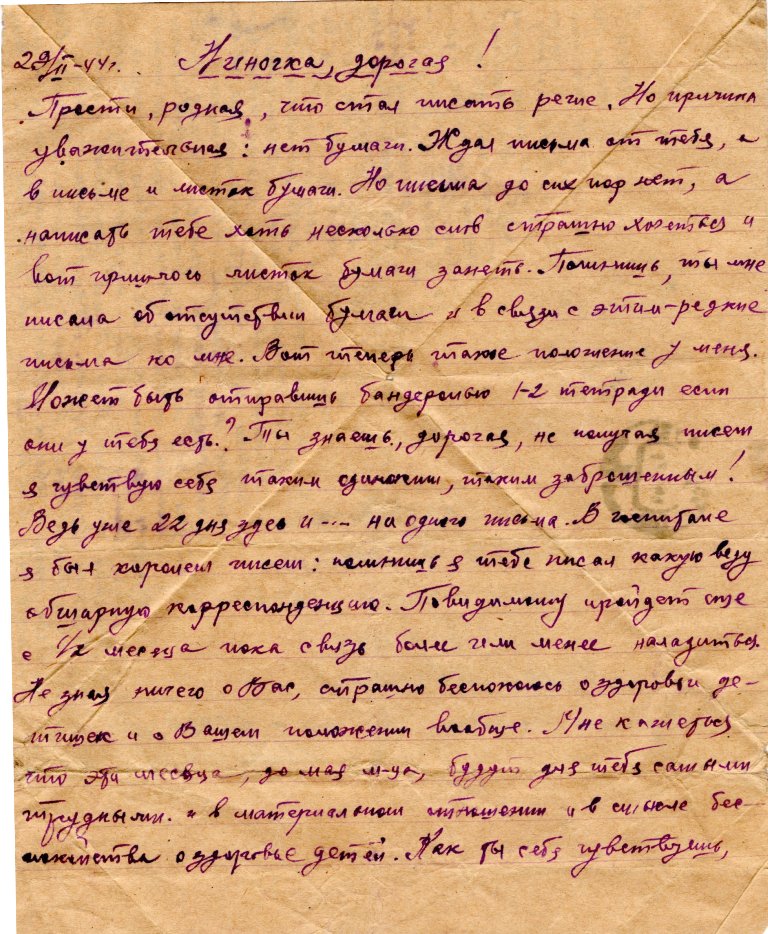 29/II-44г. Ниночка, дорогая!
Прости, родная, что стал писать реже. Но причина
уважительная: нет бумаги. Ждал письма от тебя, а
в письме и листок бумаги. Но письма до сих пор нет, а
написать тебе хоть несколько слов страшно хочеться и
вот пришлось листок бумаги занять. Помнишь, ты мне
писала об отсутствии бумаги и в связи с этим-редкие
письма ко мне. Вот теперь такое положение у меня.
Может быть отправишь бандеролью 1-2 тетради если
они у тебя есть? Ты знаешь, дорогая, не получая писем
я чувствую себя таким одиноким, таким заброшенным!
Ведь уже 22 дня здесь и --- ни одного письма. В госпитале
я был королем писем: помнишь я тебе писал какую веду
обширную корреспонденцию. Повидимому пройдет еще
с 1/2 месяца пока связь более или менее наладиться.
Не зная ничего о Вас, страшно беспокоюсь о здоровьи де-
тишек и о Вашем положении вообще. Мне кажеться
что эти месяца, до мая м-ца, будут для тебя самыми
трудными и в материальном отношении и в смысле бес-
покойства о здоровье детей. Как ты себя чувствуешь,